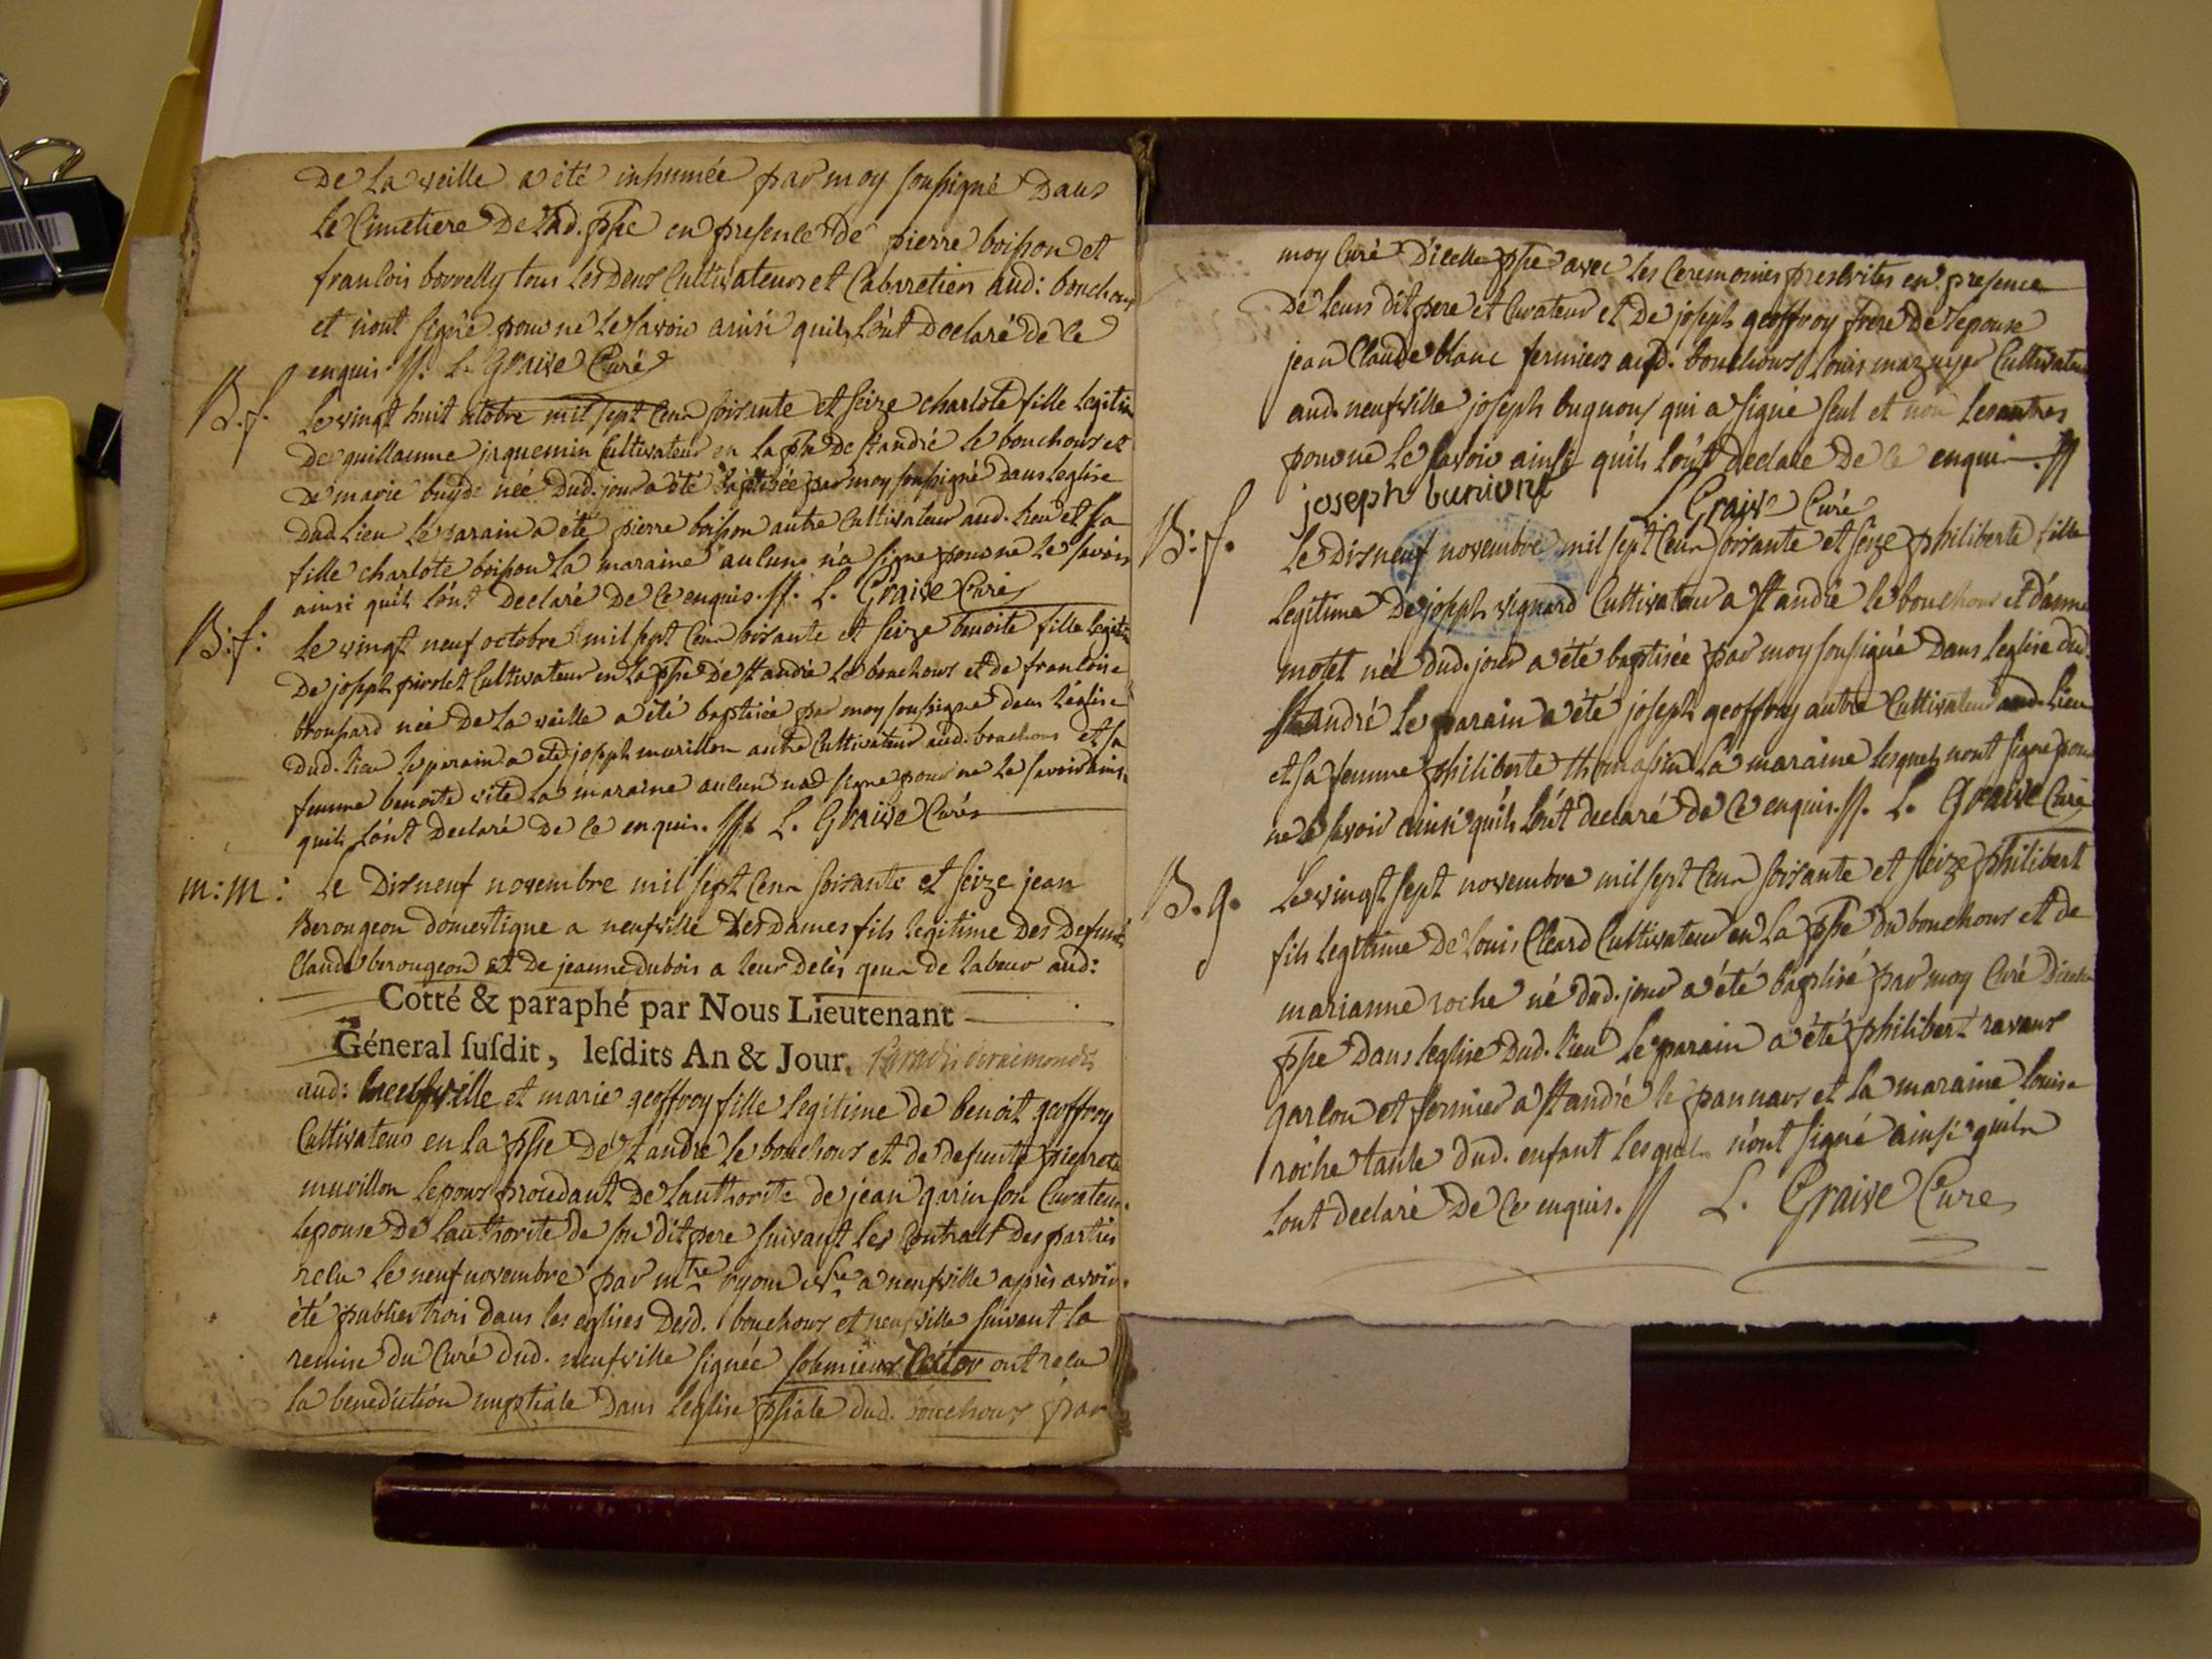 De La veille a été inhumée par moy soussigné Dans
Le Cimetiere De Lad. ppse en presence De pierre boisson et
francois borrelly tous Les Deux Cultivateurs et Cabaretiers aud: bouchoux
et n'ont signé pour ne Le savoir ainsi quils l'ont Declaré de Ce
enquis //. L. Graive Curé
B.f. Le vingt huit octobre mil sept Cent soixante et seize charlote fille Legitime
De guillaume jaquemin Cultivateur en La ppse De st andré le bouchoux et
De marie buyde née Dud. jour a été baptisée par moy soussigné Dans Leglise
Dud. Lieu Le parain a été pierre boisson autre Cultivateur aud. Lieu et sa
fille charlote boisson La maraine aucuns n'a signé pour ne Le savoir
ainsi quils l'ont Declaré De Ce enquis. //. L. Graive Curé
B:f: Le vingt neuf octobre mil sept Cent soixante et seize benoite fille Legitime
De joseph pirolet Cultivateur en La ppse De st andré Le bouchoux et de francoise
broussard née De La veille a été baptisée par moy soussigné dans L'eglise
Dud. Lieu Le parain a été joseph murillon autre Cultivateur aud. bouchoux et sa
femme benoite vite La maraine aucun n'a signé pour ne Le savoir ainsi
quils l'ont Declaré De Ce enquis. // L. Graive Curé
m:m: Le Dixneuf novembre mil sept Cent soixante et seize jean
Berougeon domestique a neufville Les Dames fils legitime Des Defunts
Claude berougeon et De jeanne dubois a leur Deces gens de labeur aud:
Cotté & paraphé par Nous Lieutenant
Géneral susdit, lesdits An & Jour.
aud: neufville et marie geoffroy fille Legitime de benoit geoffroy
Cultivateur en La ppse De st andré Le bouchoux et de defunte pierrete
murillon Lepoux procedant De Lauthorité de jean garin son Curateur.
Lepouse De Lauthorité de son dit pere suivant Les Contract Des parties
recu Le neuf novembre par mtre nore a neufville après avoir
été publiés trois dans les eglises Desd. bouchoux et neufville suivant la
remise du Curé dud. neufville signée ont recu
la benediction nuptiale Dans Leglise ppsiale dud. bouchoux par
moy Curé D'icelle ppse avec Les Ceremonies prescrites en presence
De Leurs dit pere et Curateur et De joseph geoffroy frere De Lepouse
jean Claude blanc fermiers aud. bouchoux Louis mazuyer Cultivateur
aud. neufville joseph bugnons qui a signé seul et non Les autres
pour ne Le savoir ainsi quils l'ont declaré De Ce enquis. //
joseph buniont L. Graive Curé
B:f. Le Dixneuf novembre mil sept Cent soixante et seize philiberte fille
Legitime De joseph vignard Cultivateur a st andré le bouchoux et d'anne
motet née dud. jour a été baptisée par moy soussigné Dans Leglise dud.
St andré Le parain a été joseph geoffroy autre Cultivateur aud. Lieu
et sa femme philiberte thomassin La maraine Lesquels n'ont signé pour
ne le savoir ainsi quils l'ont declaré de Ce enquis. //. L. Graive Curé
B.g. Le vingt sept novembre mil sept Cent soixante et seize philibert
fils legitime De Louis Cleard Cultivateur en La ppse du bouchoux et de
marianne roche né dud. jour a été baptisé par moy Curé D'icelle
ppse Dans leglise Dud. Lieu Le parain a été philibert ravaux
garcon et fermier a st andré le pannoux et La maraine louise
roche tante dud. enfant Lesquels n'ont signé ainsi quils
l'ont declaré De Ce enquis. // L. Graive Curé